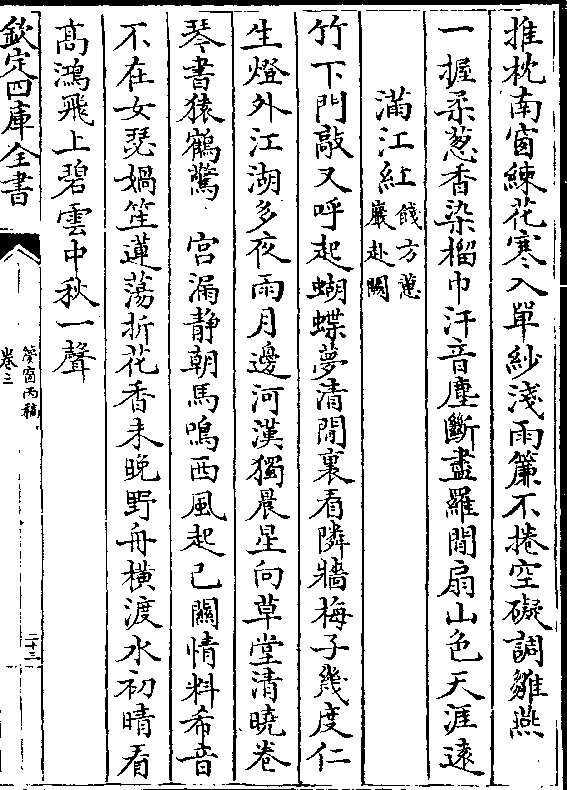 推枕南窗練花寒入單紗淺雨簾不捲空礙調雛燕
一握柔葱香染榴巾汗音塵斷畫羅閒扇山色天涯遠
滿江紅餞方蕙
巖赴闕
竹下門敲又呼起蝴蝶夢清閒裏看隣牆梅子幾度仁
生燈外江湖多夜雨月邊河漢獨晨星向草堂清曉卷
琴書猿鶴驚 宮漏靜朝馬鳴西風起已關情料希音
不在女瑟媧笙蓮蕩折花香未晚野舟橫渡水初晴看
高鴻飛上碧雲中秋一聲
欽定四庫全書
篔窗丙稿
卷三
二十三